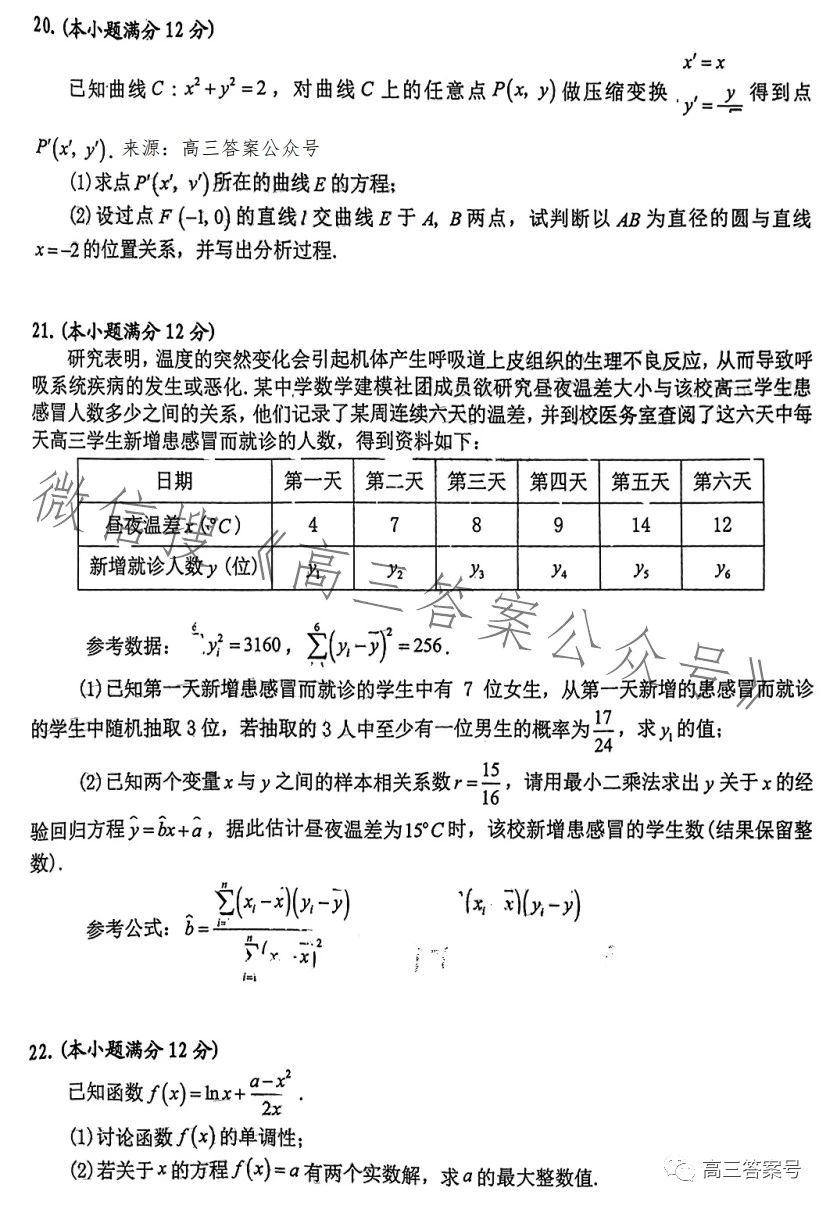 20. (本小题满分 12 分)
x′ = x
已知曲线 C : x² + y² = 2 ，对曲线 C 上的任意点 P(x, y) 做压缩变换 y′ = y 得到点
P′(x′, y′). 来源：高三答案公众号
(1)求点 P′(x′, y′) 所在的曲线 E 的方程;
(2)设过点 F (−1, 0) 的直线 l 交曲线 E 于 A, B 两点，试判断以 AB 为直径的圆与直线
x = −2 的位置关系，并写出分析过程.
21. (本小题满分 12 分)
研究表明, 温度的突然变化会引起机体产生呼吸道上皮组织的生理不良反应, 从而导致呼
吸系统疾病的发生或恶化. 某中学数学建模社团成员欲研究昼夜温差大小与该校高三学生患
感冒人数多少之间的关系, 他们记录了某周连续六天的温差, 并到校医务室查阅了这六天中每
天高三学生新增患感冒而就诊的人数, 得到资料如下:
日期 第一天 第二天 第三天 第四天 第五天 第六天
昼夜温差 x (°C) 4 7 8 9 14 12
新增就诊人数 y (位) y₁ y₂ y₃ y₄ y₅ y₆
参考数据: yᵢ² = 3160 , ∑(yᵢ − ȳ)² = 256 .
(1)已知第一天新增患感冒而就诊的学生中有 7 位女生，从第一天新增的患感冒而就诊
的学生中随机抽取 3 位，若抽取的 3 人中至少有一位男生的概率为 17/24 ，求 y₁ 的值;
(2)已知两个变量 x 与 y 之间的样本相关系数 r = 15/16 ，请用最小二乘法求出 y 关于 x 的经
验回归方程 ŷ = b̂x + â ，据此估计昼夜温差为 15°C 时，该校新增患感冒的学生数(结果保留整
数).
参考公式: b̂ = ∑(xᵢ − x̄)(yᵢ − ȳ)
22. (本小题满分 12 分)
已知函数 f(x) = ln x + (a − x²)/2x .
(1)讨论函数 f(x) 的单调性;
(2)若关于 x 的方程 f(x) = a 有两个实数解，求 a 的最大整数值.
微信搜《高三答案公众号》
高三答案号